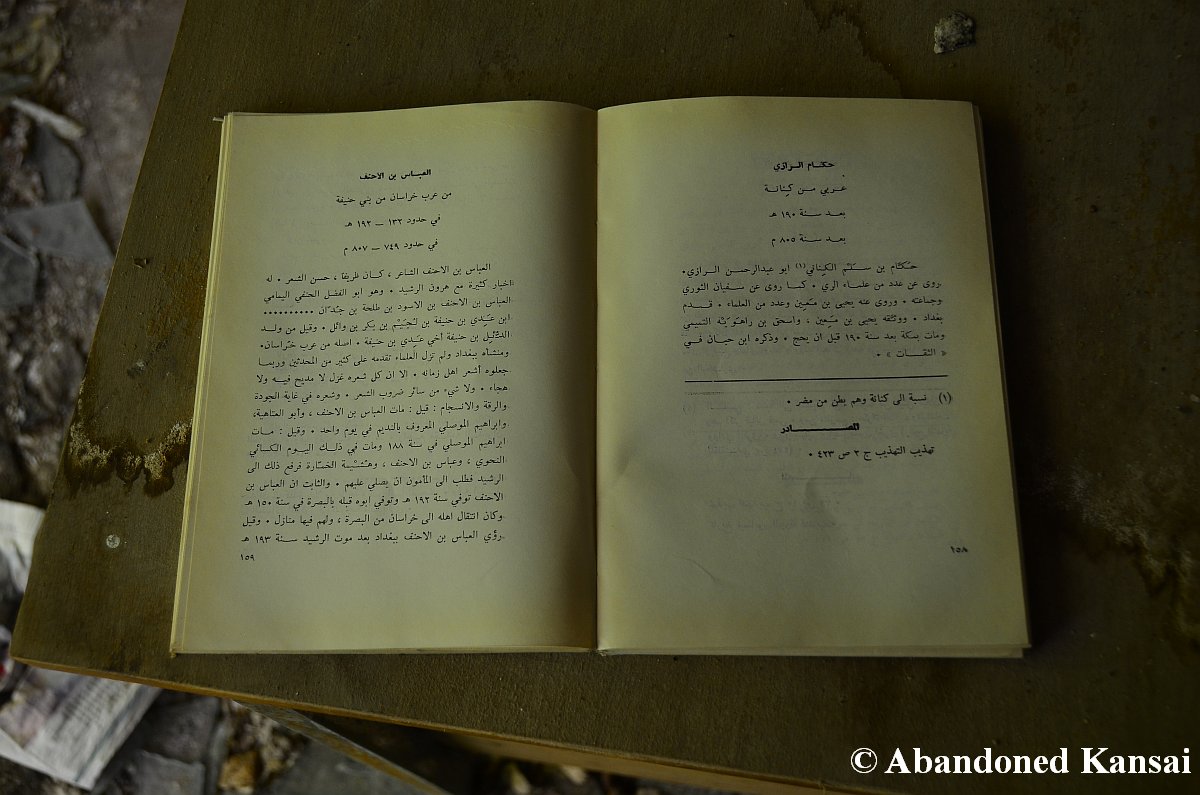 حكام الرازي
عربي من كِنانة
بعد سنة ١٩٠ هـ
بعد سنة ٨٠٥ م
حُكّام بن سَلْم الكِناني (١) ابو عبدالرحمن الرازي.
روى عن عدد من علماء الري . كما روى عن سفيان الثوري
وجماعته . وروى عنه يحيى بن مَعِين وعدد من العلماء . قدم
بغداد . ووثقه يحيى بن مَعِين ، واسحق بن راهَوَيْه التميمي
ومات بمكة بعد سنة ١٩٠ قبل ان يحج . وذكره ابن حبان في
« الثقات » .
(١) نسبة الى كنانة وهم بطن من مضر .
المصادر
تهذيب التهذيب ج ٢ ص ٤٢٣ .
١٥٨
العباس بن الاحنف
من عرب خراسان من بني حنيفة
في حدود ١٣٢ – ١٩٢ هـ
في حدود ٧٤٩ – ٨٠٧ م
العباس بن الاحنف الشاعر ، كان ظريفا ، حسن الشعر . له
اخبار كثيرة مع هرون الرشيد . وهو ابو الفضل الحنفي اليمامي
العباس بن الاحنف بن الاسود بن طلحة بن جَدّان ..........
ابن عَدِي بن حنيفة بن لُجَيْم بن بكر بن وائل . وقيل من ولد
الدّئِل بن حنيفة أخي عَدِي بن حنيفة . اصله من عرب خراسان.
ومنشأه ببغداد ولم تزل العلماء تقدمه على كثير من المحدثين وربما
جعلوه أشعر اهل زمانه . الا ان كل شعره غزل لا مديح فيه ولا
هجاء . ولا شيء من سائر ضروب الشعر . وشعره في غاية الجودة
والرقة والانسجام : قيل : مات العباس بن الاحنف ، وأبو العتاهية،
وابراهيم الموصلي المعروف بالنديم في يوم واحد . وقيل : مات
ابراهيم الموصلي في سنة ١٨٨ ومات في ذلك اليوم الكسائي
النحوي ، وعباس بن الاحنف ، وهُشَيمة الخمّارة فرفع ذلك الى
الرشيد فطلب الى المأمون ان يصلي عليهم . والثابت ان العباس بن
الاحنف توفي سنة ١٩٢ هـ وتوفي ابوه قبله بالبصرة في سنة ١٥٠ هـ
وكان انتقال اهله الى خراسان من البصرة ، ولهم فيها منازل . وقيل
رؤي العباس بن الاحنف ببغداد بعد موت الرشيد سنة ١٩٣ هـ
١٥٩
© Abandoned Kansai